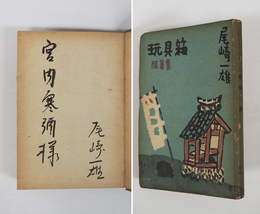 宮内寒彌様
尾崎一雄
尾崎一雄
玩具箱
随筆集